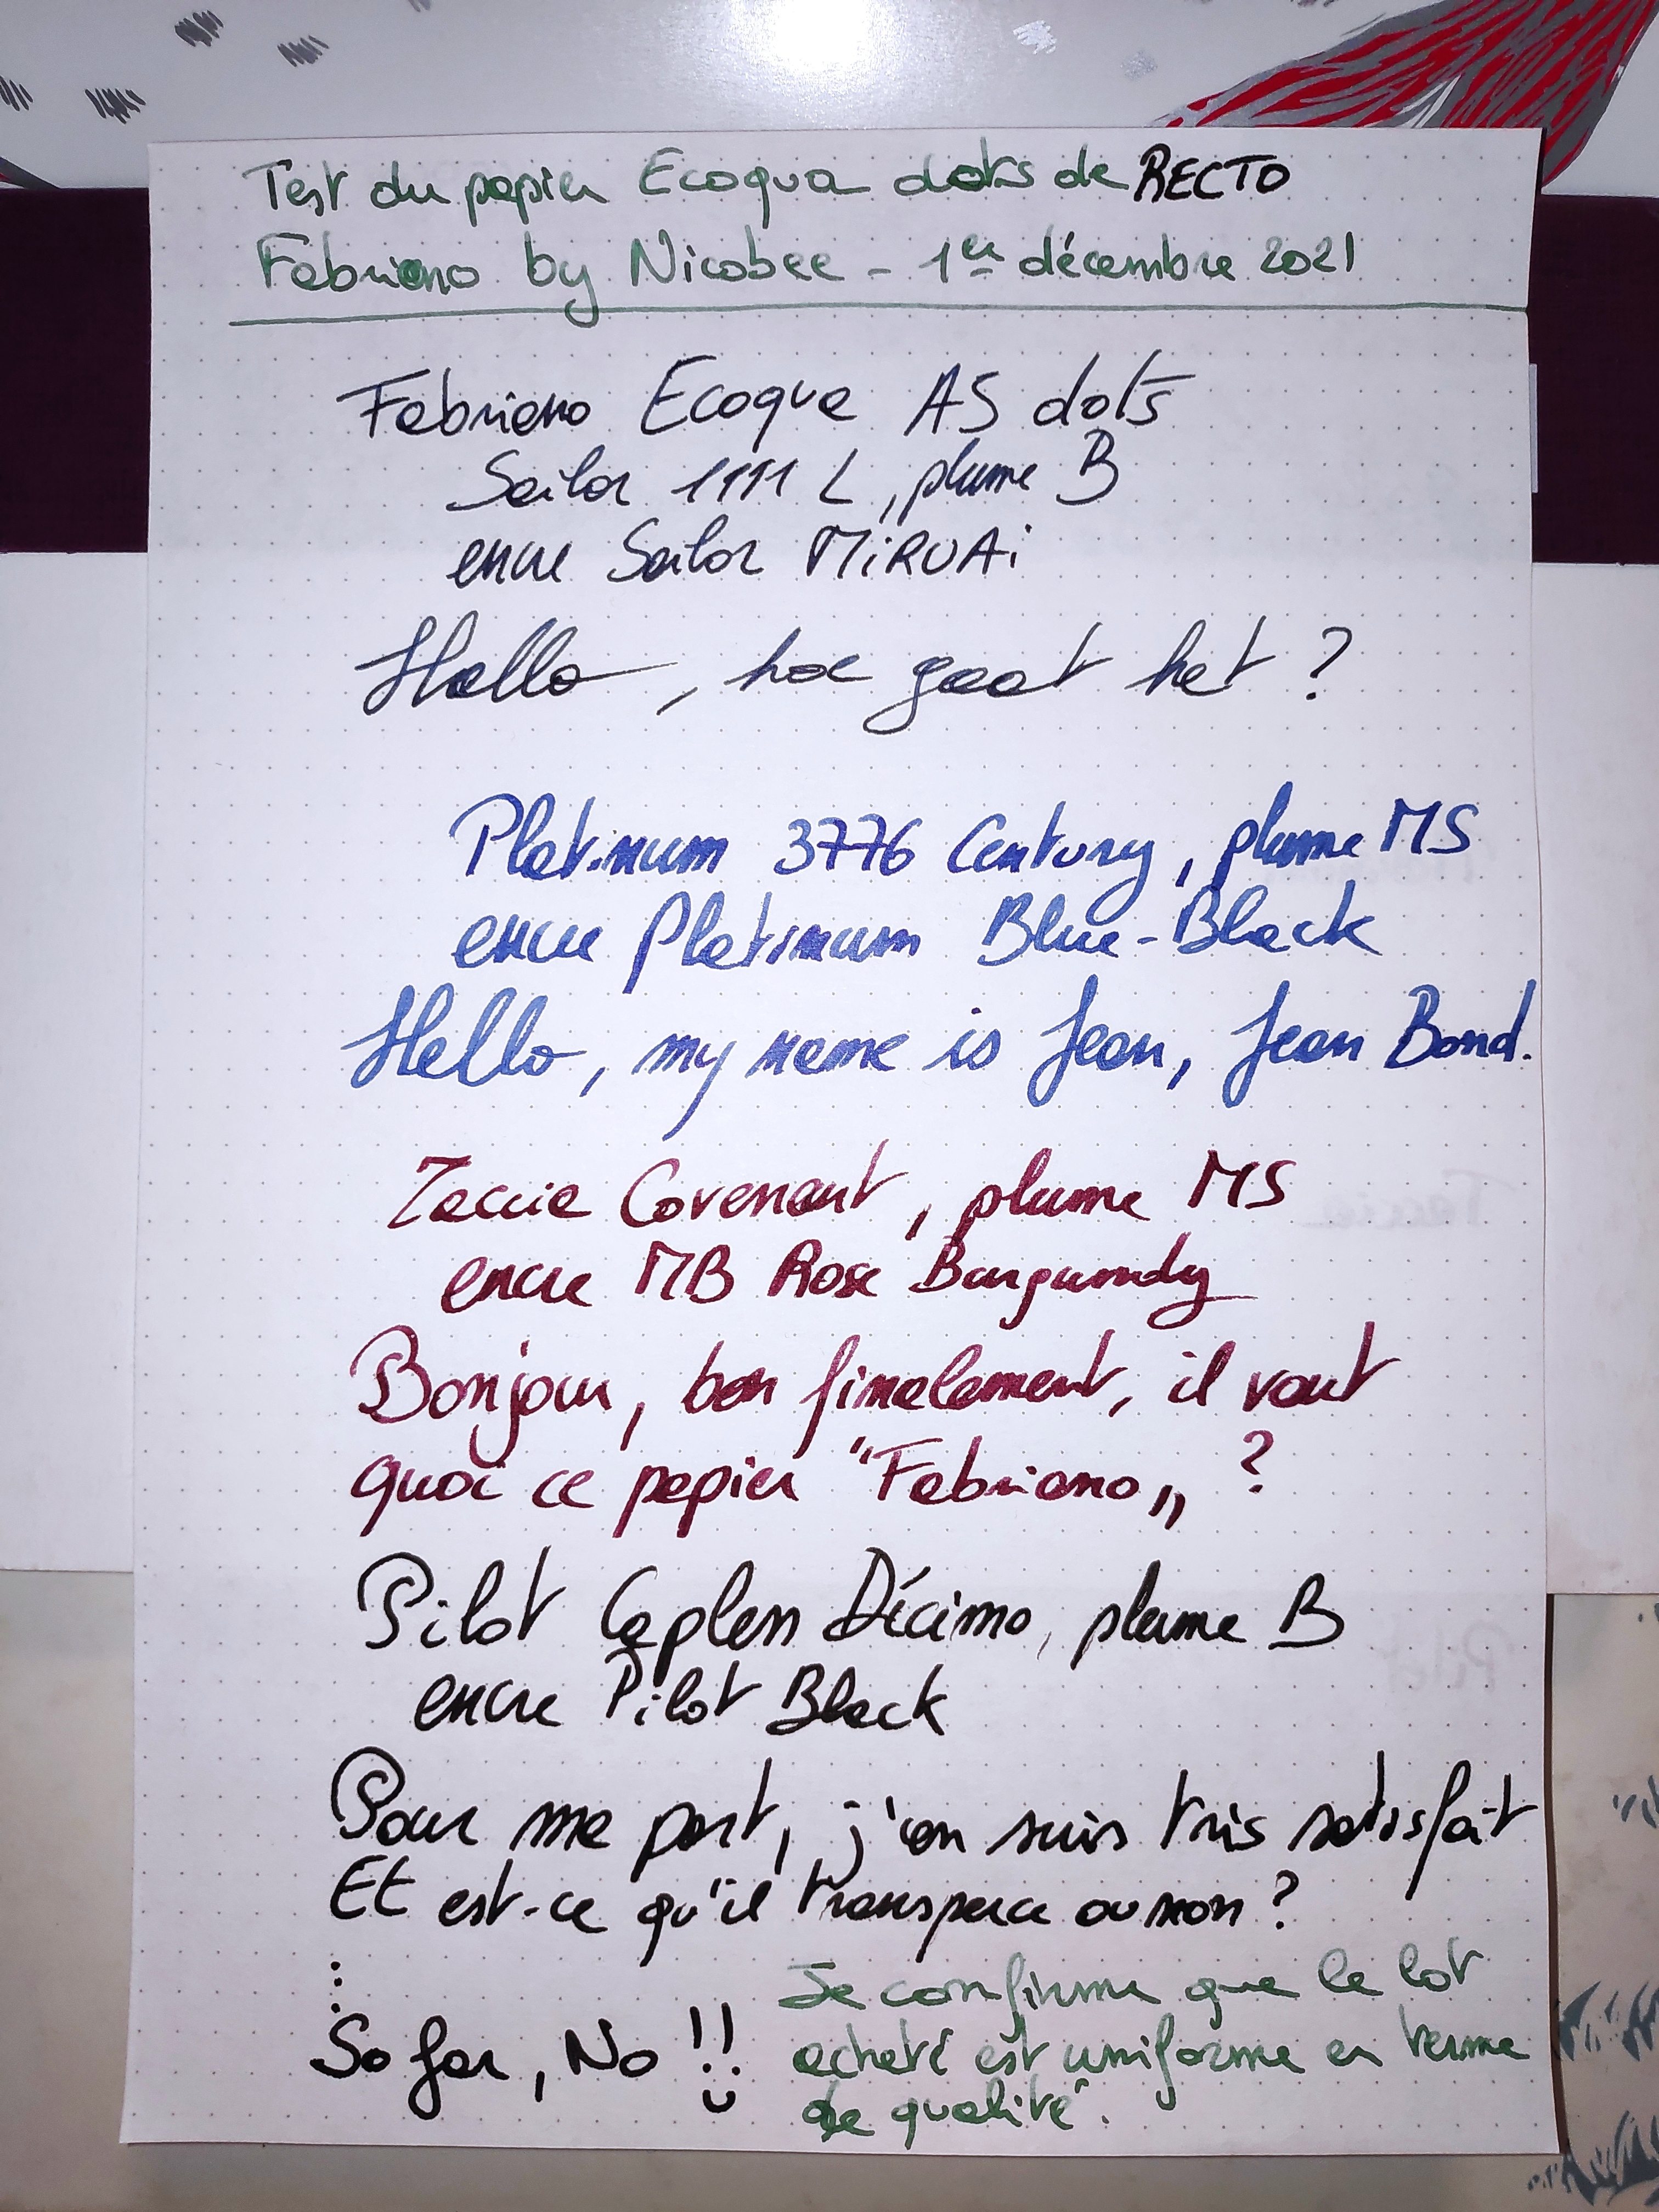 Test du papier Ecoqua dots de RECTO
Fabriano by Nicobee - 1er décembre 2021
Fabriano Ecoqua A5 dots
Sailor 1911 L, plume B
encre Sailor MiRUAi
Hallo, hoe gaat het ?
Platinum 3776 Century, plume MS
encre Platinum Blue-Black
Hello, my name is Jean, Jean Bond.
Taccia Covenant, plume MS
encre MB Rose Burgundy
Bonjour, bon finalement, il vaut
quoi ce papier "Fabriano„ ?
Pilot Capless Décimo, plume B
encre Pilot Black
Pour ma part, j'en suis très satisfait
Et est-ce qu'il transperce ou non ?
So far, No !!
Je confirme que le lot
acheté est uniforme en terme
de qualité.
Taccia
Pilot